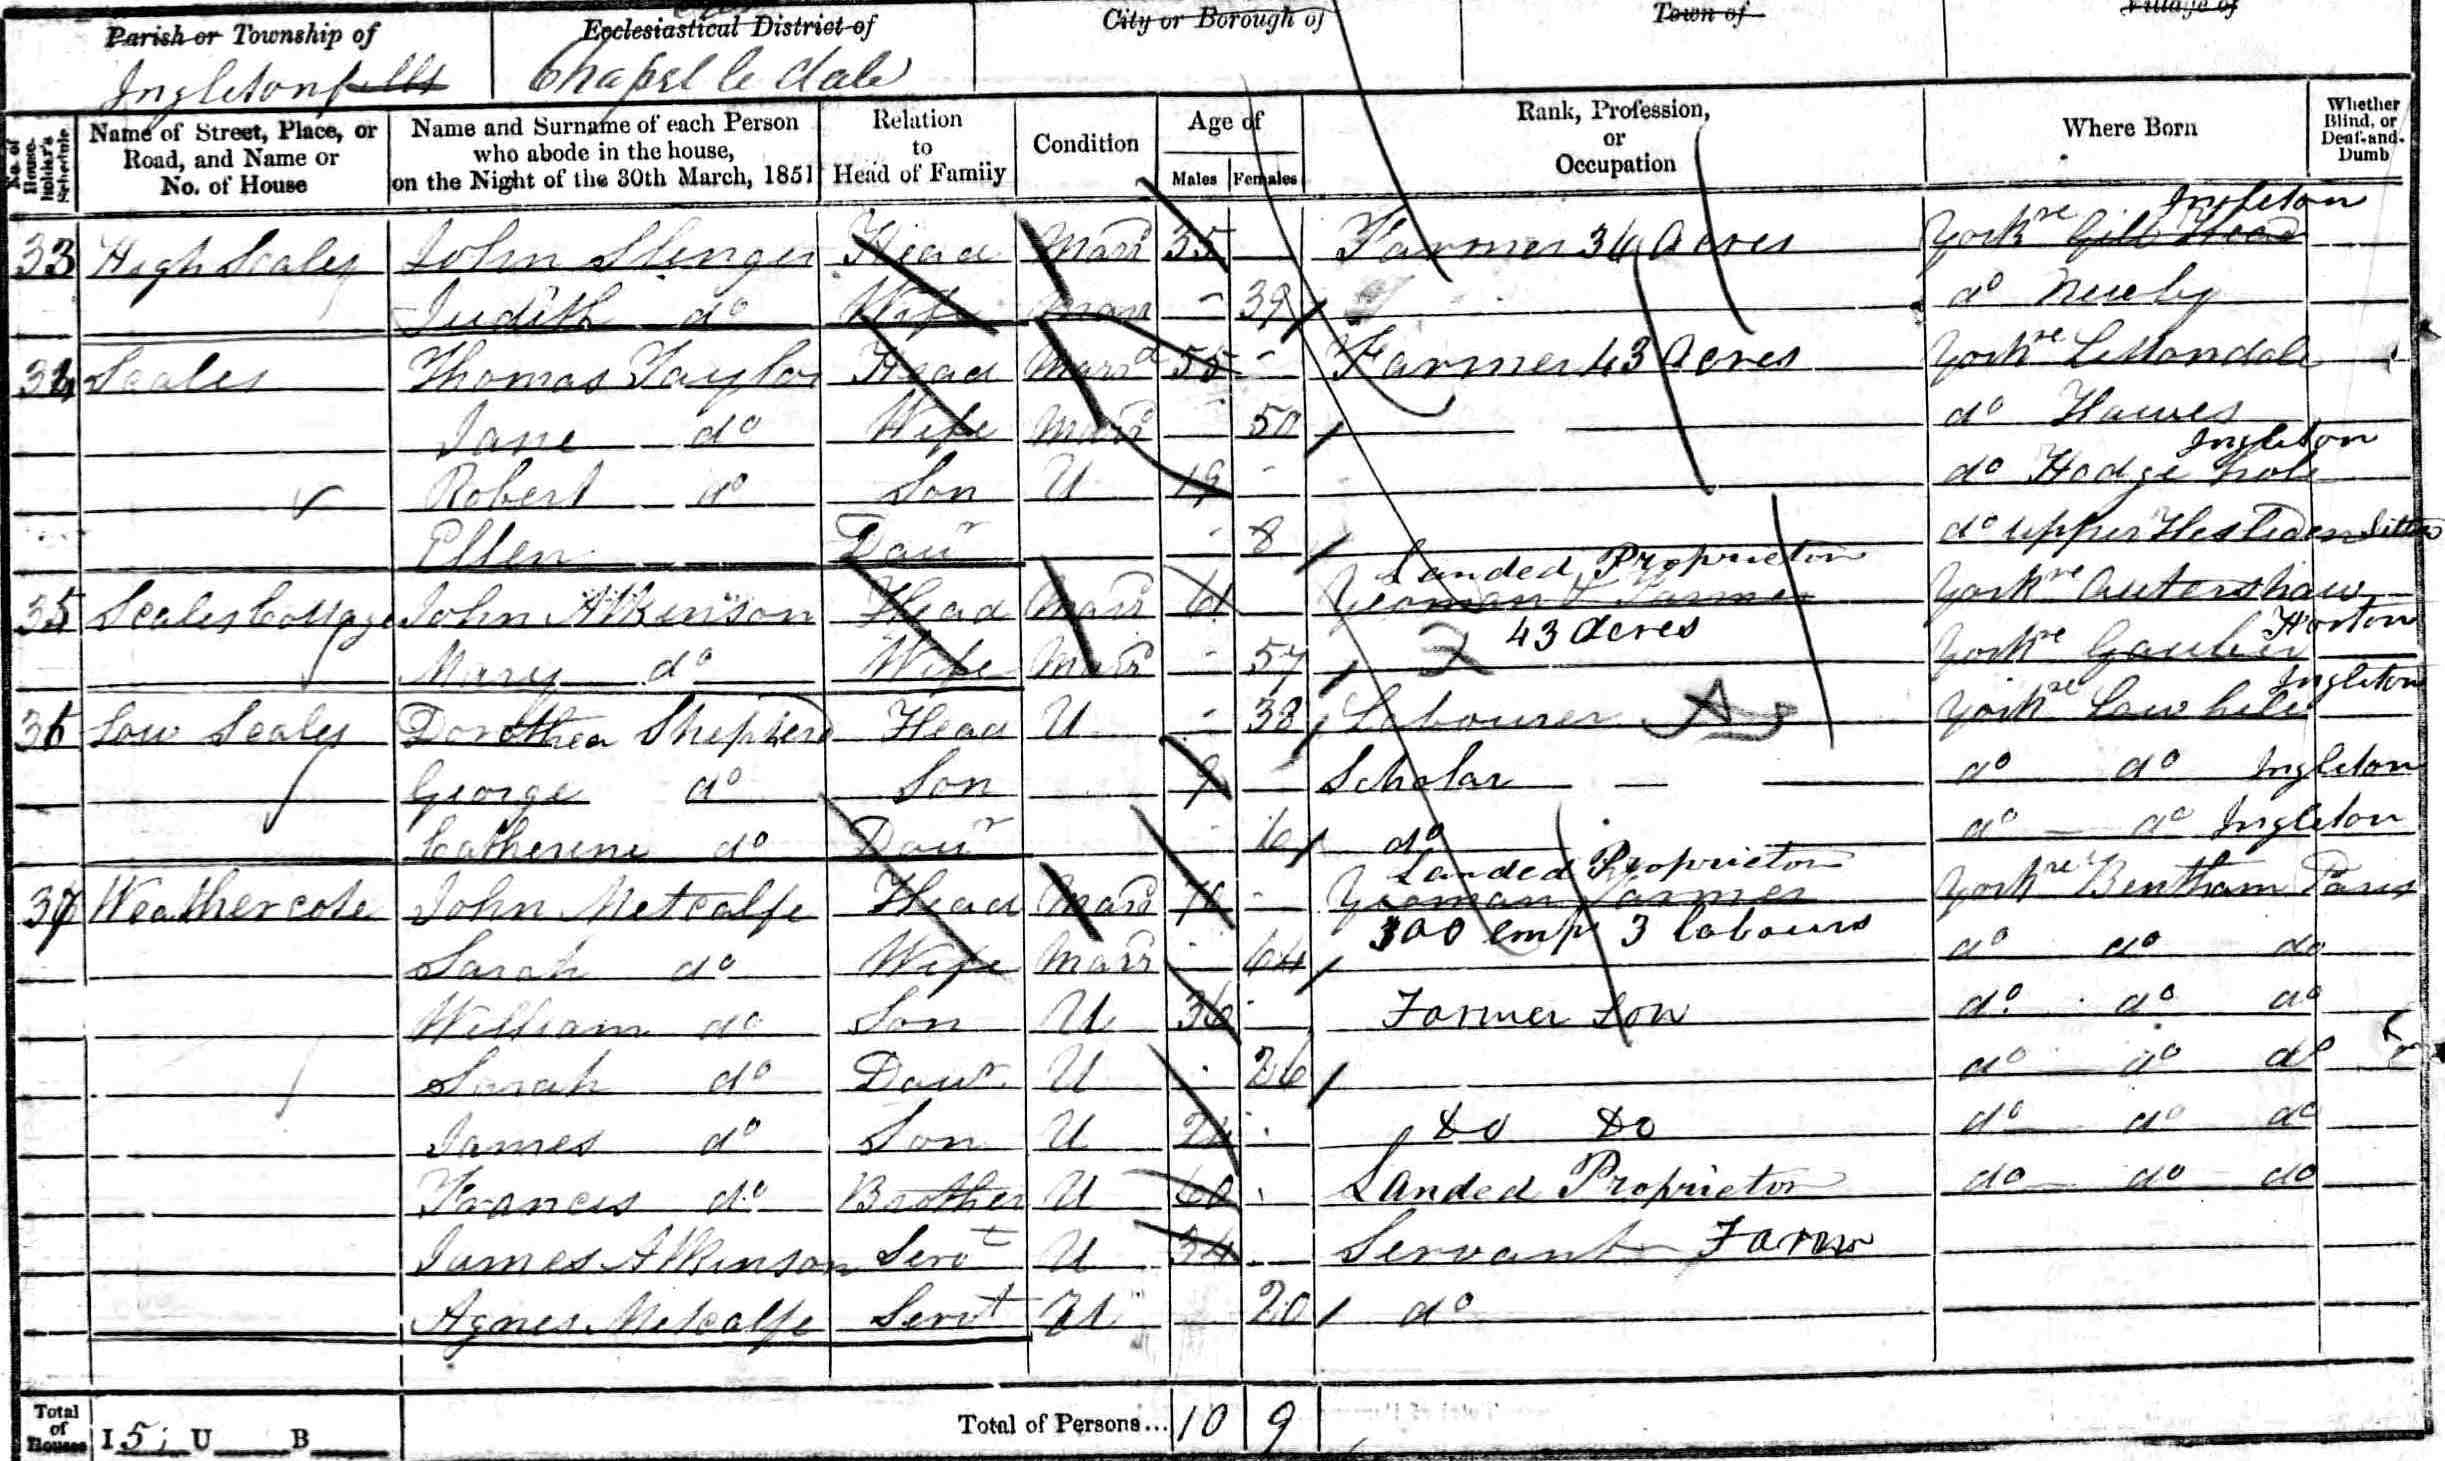 Parish or Township of Ecclesiastical District of City or Borough of Town of Village of
Ingletonfells Chapel le dale
No. of House-holder's Schedule Name of Street, Place, or Road, and Name or No. of House Name and Surname of each Person who abode in the house, on the Night of the 30th March, 1851 Relation to Head of Family Condition Age of Males Females Rank, Profession, or Occupation Where Born Whether Blind, or Deaf-and-Dumb
Ingleton
33 High Scales John Slinger Head Marr 35 Farmer 36 Acres Yorkre Gill Head
Judith do Wife Marr - 39 do Newby
34 Scales Thomas Taylor Head Marrd 55 - Farmer 43 Acres Yorkre Littondale
Jane do Wife Marr - 50 do Hawes
Ingleton
Robert do Son U 19 - do Hodge hole
Ellen Daur - 8 do Upper Hesleden Litton
Landed Proprietor
35 Scales Cottage John Atkinson Head Marr 61 Yeoman & Farmer Yorkre Outershaw
43 Acres Horton
Mary do Wife Marr - 57 Yorkre Gauber
Ingleton
36 Low Scales Dorothea Shepherd Head U - 38 Labourer Yorkre Low hill
George do Son 9 Scholar do do Ingleton
Catherine do Daur - 6 do do do Ingleton
Landed Proprietor
37 Weathercote John Metcalfe Head Marr 76 - Yeoman Farmer Yorkre Bentham Paris
300 emp 3 labours
Sarah do Wife Marr - 64 do do do
William do Son U 36 Farmer Son do do do
Sarah do Daur U - 26 do do do
James do Son U 24 do do do do do
Francis do Brother U 60 Landed Proprietor do do do
James Atkinson Servt U 34 Servant Farm
Agnes Metcalfe Servt U 20 do
Total of Houses I 5 U B Total of Persons... 10 9